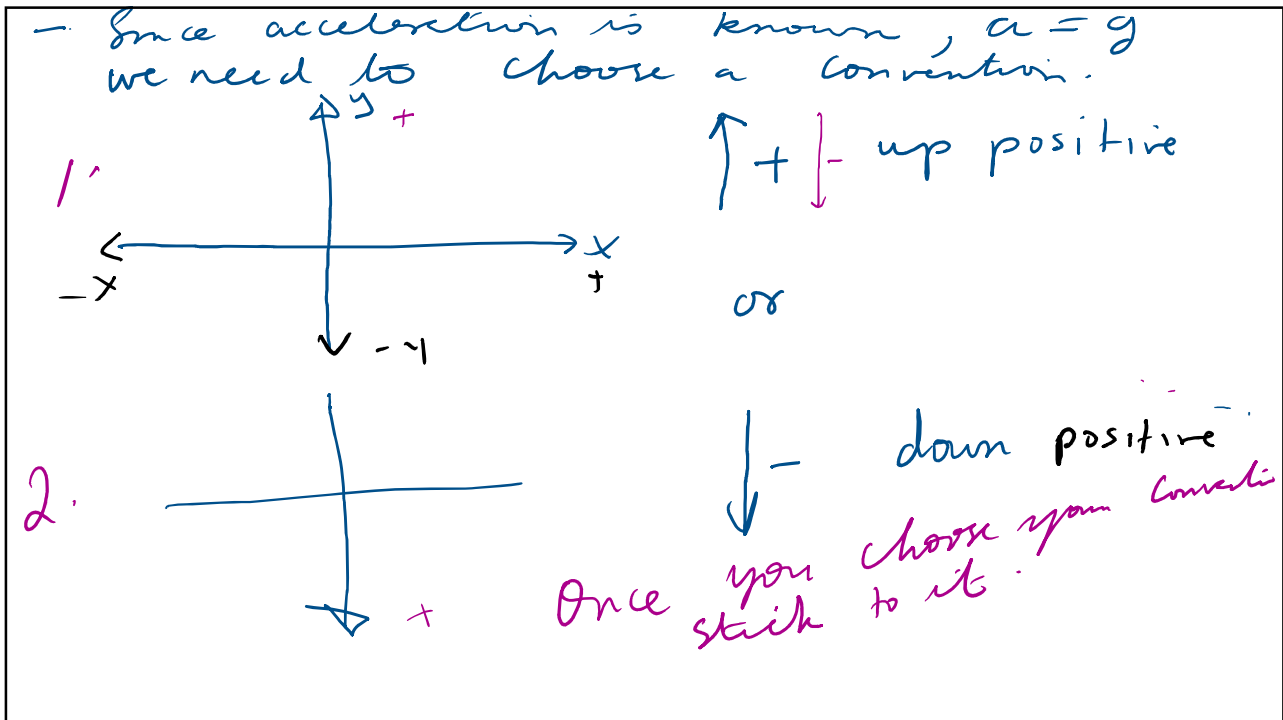 - Since acceleration is known, a = g
we need to choose a convention.
y +
1.
+ - up positive
x
-x
+
or
-y
down positive
-
2.
Once you choose your
stick to it.
+